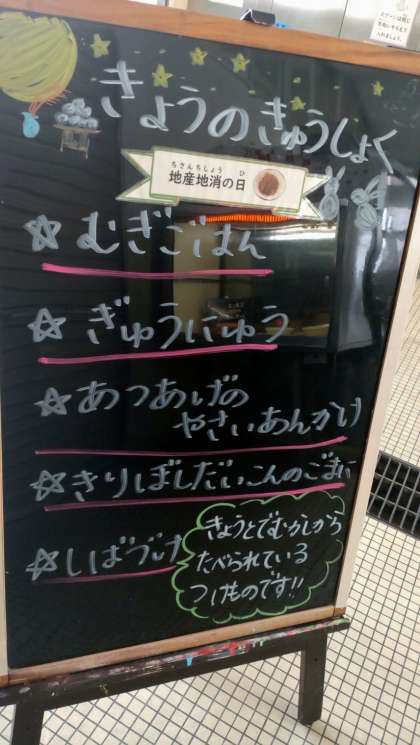 きょうのきゅうしょく
ちさんちしょう ひ
地産地消の日
☆むぎごはん
☆ぎゅうにゅう
☆あつあげの
やさいあんかけ
☆きりぼしだいこんのごまに
☆しばづけ
きょうとでむかしから
たべられている
つけものです!!